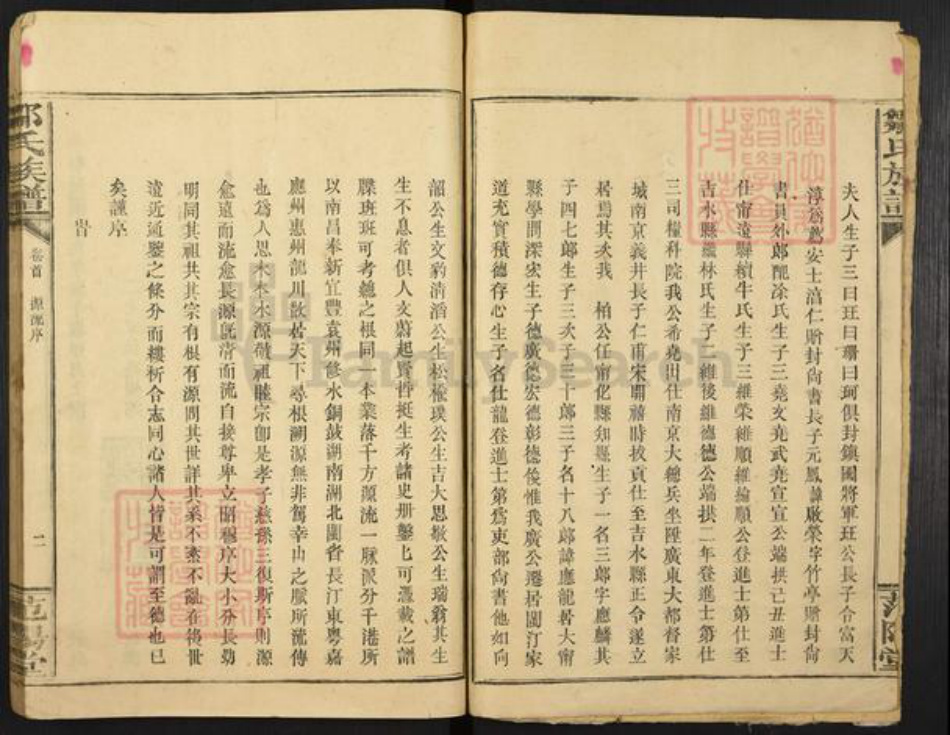 鄒氏族譜
夫人生子三曰玨曰珊曰珂俱封鎮國將軍玨公長子合富天
淳爲薦安士涪仁贈封尚書長子元鳳諱啟榮字竹亭贈封尚
書員外郎配涂氏生子三堯文堯武堯宣宣公端拱己丑進士
仕甯遠縣續牛氏生子三維榮維順維綸順公登進士第仕至
吉水縣羅林氏生子二維後維德德公端拱二年登進士第仕
三司糧科院我公希堯出仕南京大總兵坐陞廣東大都督家
城南京義井長子仁甫宋開禧時拔貢仕至吉水縣正令遂立
居焉其次我 柏公任甯化縣知縣生子一名三郎字應麟其
子四七郎生子三次子三十郎三子名十八郎諱應龍居大甯
縣學問深宏生子德廣德宏德彰德俊惟我廣公遷居閩汀家
道充實積德存心生子名仕龍登進士第爲吏部尚書他如向
韶公生文豹清滔公生松檟璞公生吉大思敬公生瑞翁其生
生不息者俱人文蔚起賢哲挺生者諸史册鑿匕可憑載之譜
牒班班可考總之根同一本業落千方源流一脉派分千港所
以南昌奉新宜豐袁州修水銅鼓湖南湖北閩省長汀東粵嘉
應州惠州龍川散居天下尋根溯源無非駕幸山之脈所流傳
也爲人思木本水源敬祖睦宗即是孝子慈孫三復斯序則源
愈遠而流愈長源旣清而流自接尊卑立昭穆序大小分長幼
明同其祖共其宗有根有源問其世詳其系不紊不亂在後世
遠近通鑒之條分而縷析合志同心諸人皆是可謂至德也已
矣謹序
旹
鄒氏族譜
卷首 源流序
二
范陽堂
FamilySearch